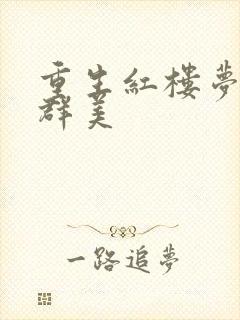 重生紅樓夢
群美
一路追夢